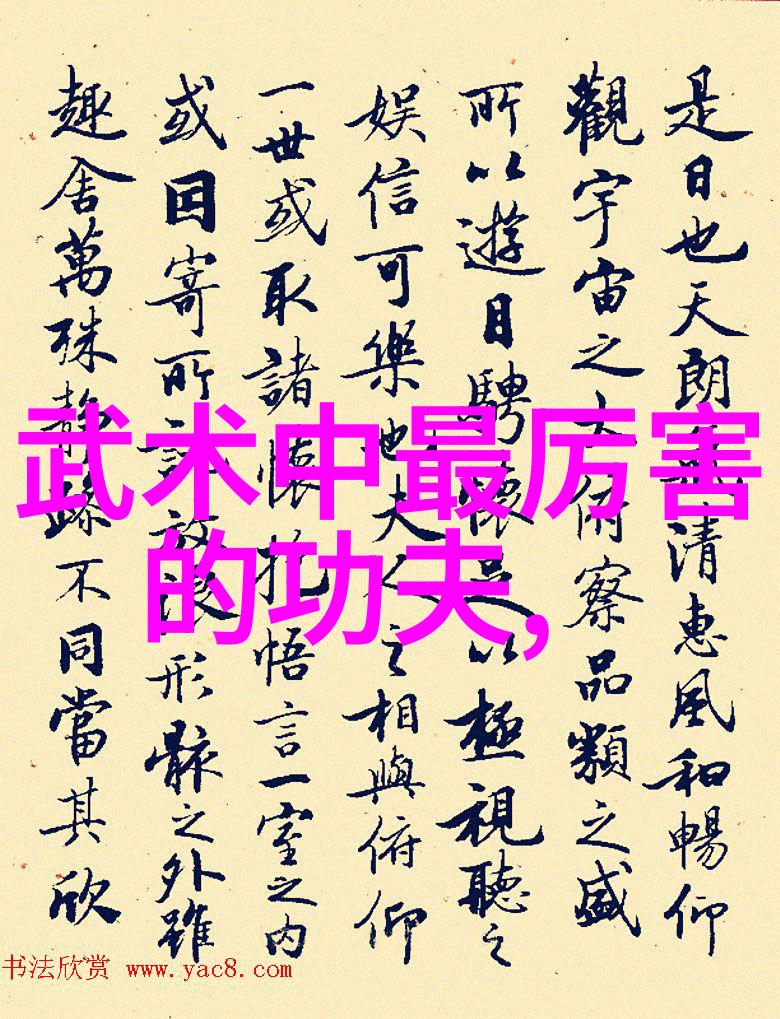 是日也天朗氣清惠風和暢仰
觀宇宙之大俯察品類之盛
所以遊目騁懷足以極視聽之
娱信可樂也夫人之相與俯仰
一世或取諸懷抱悟言一室之内
或因寄所託放浪形骸之外雖
趣舍萬殊静躁不同當其欣
武术中最厉害
的功夫,
书法欣赏 www.yac8.com